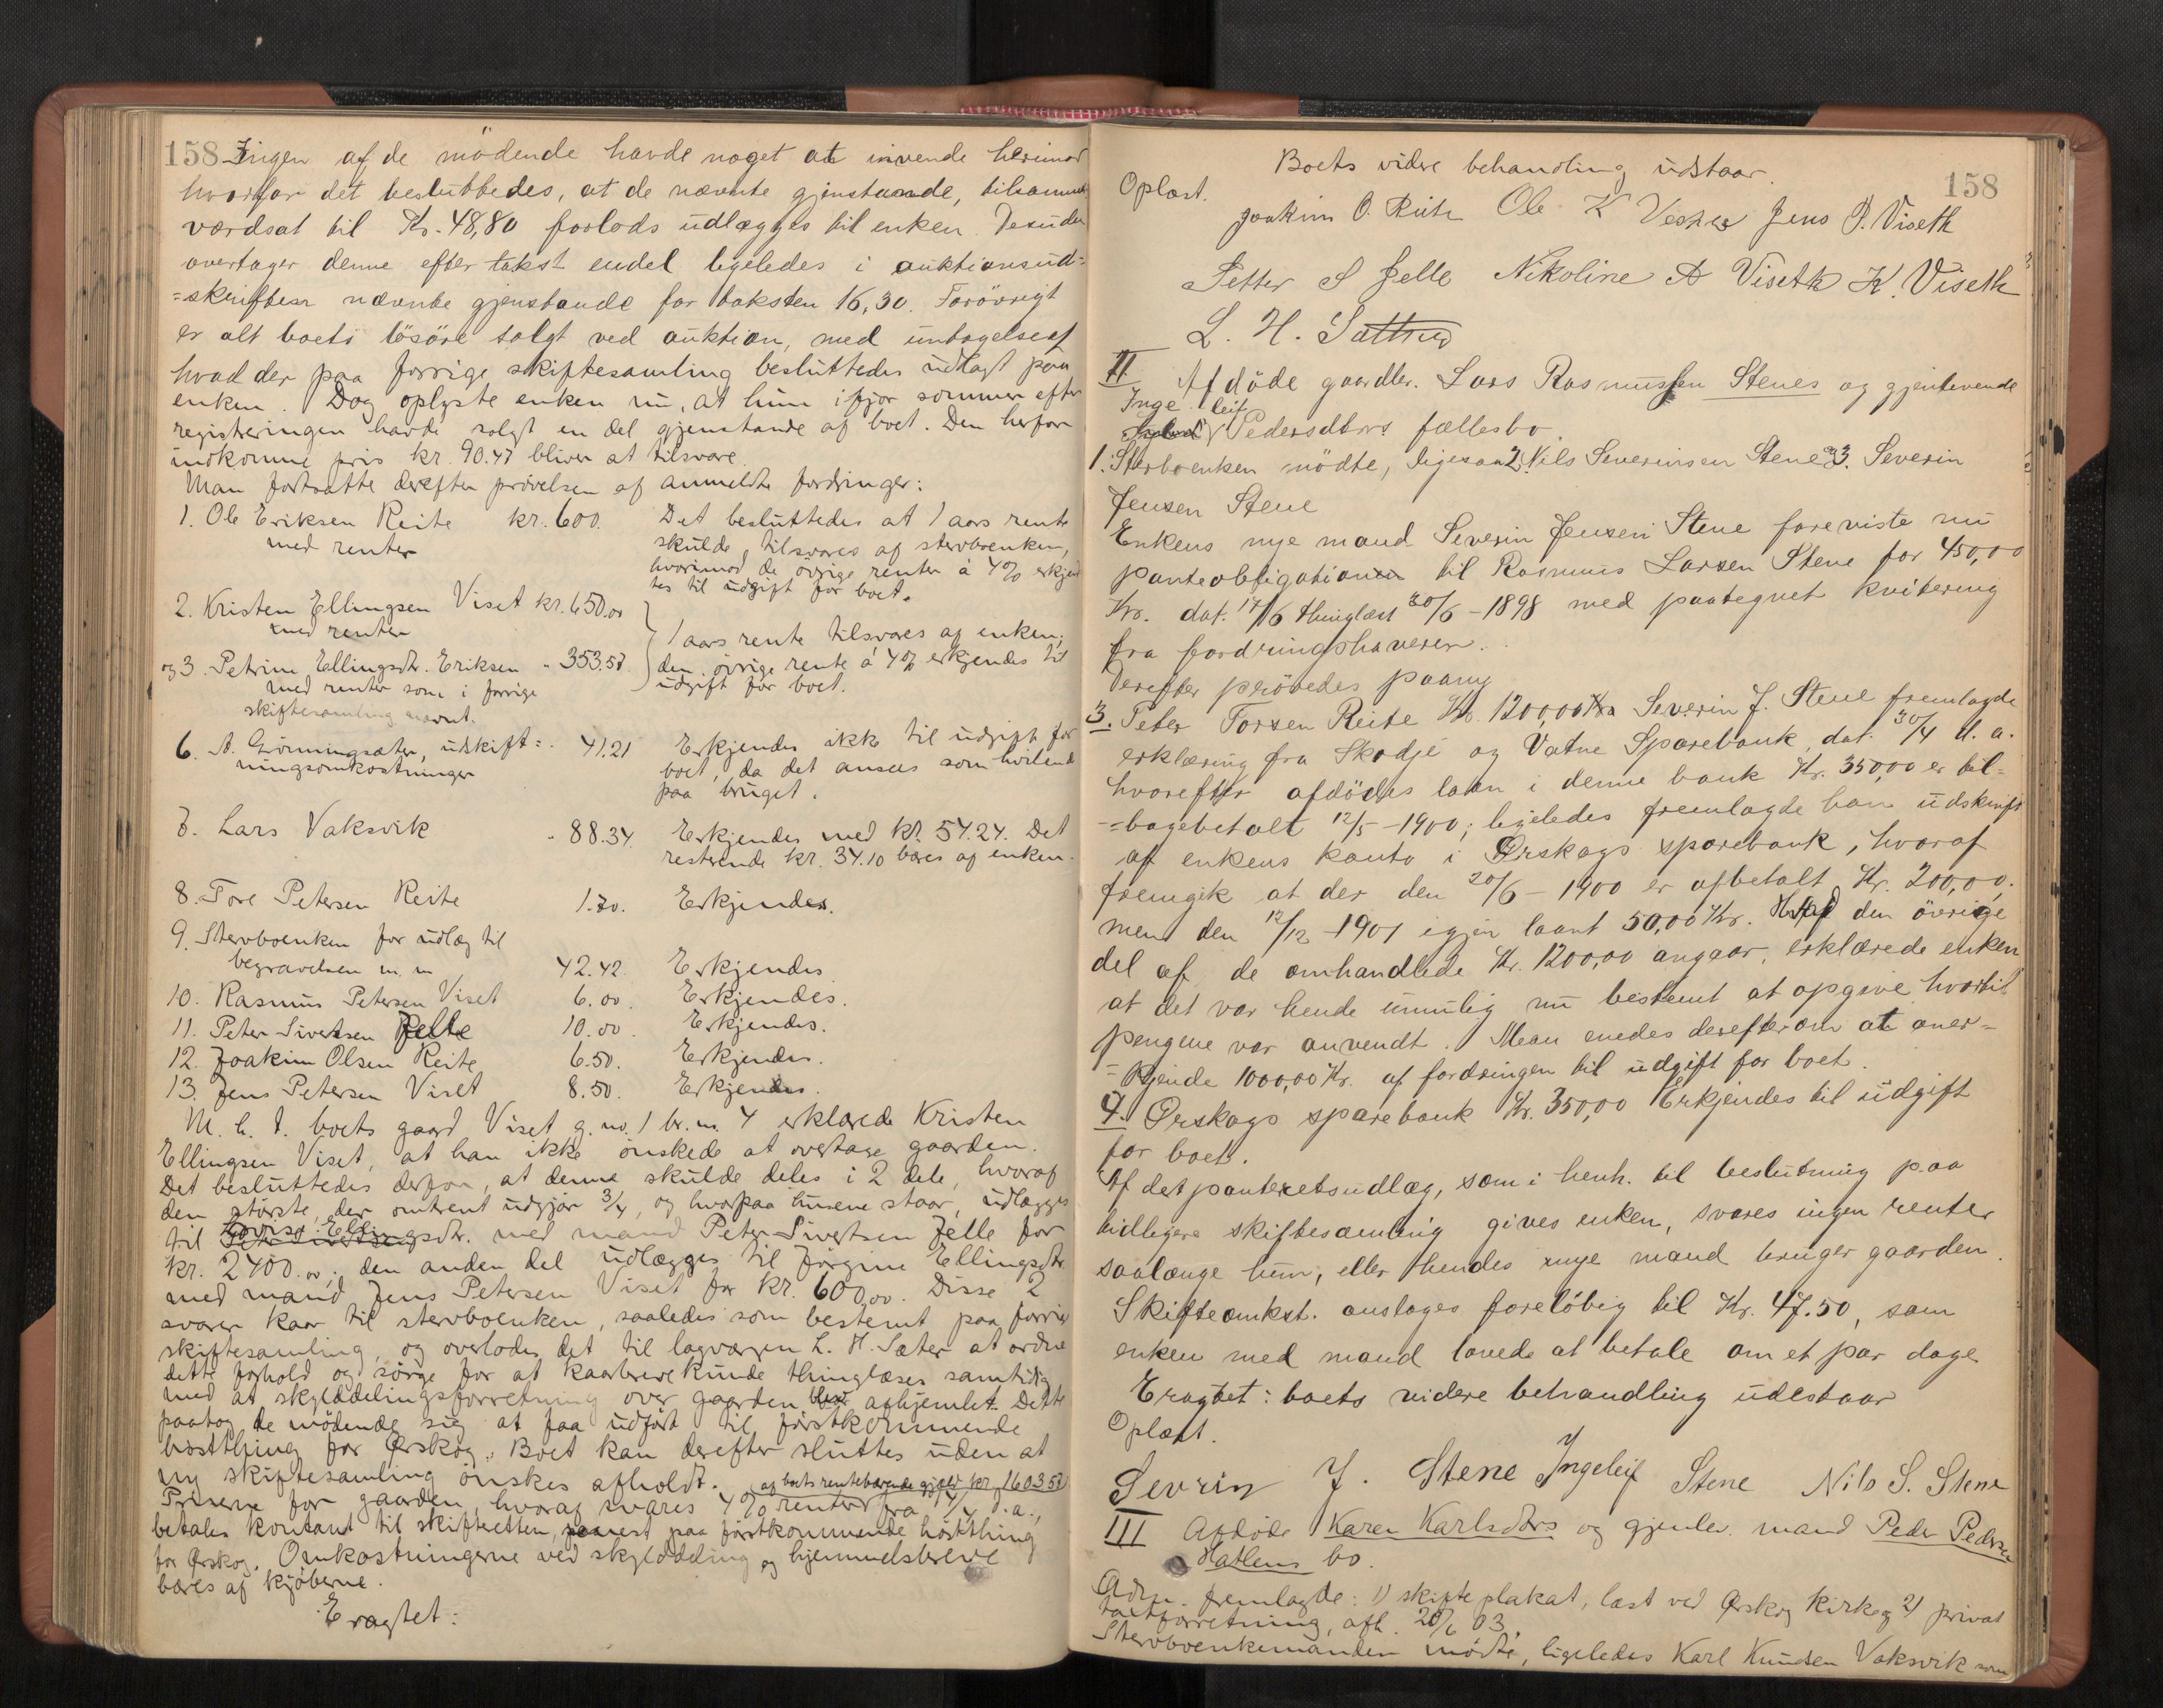 158 Ingen af de mödende havde noget at invende herimod
hvorfor det besluttedes, at de nævnte gjenstande, tilsammen
værdsat til Kr. 48,80 forlods udlægges til enken. Desuden
overtager denne efter takst endel ligeledes i auktionsud=
=skriften nævnte gjenstande for taksten 16,30. Forövrigt
er alt boets lösöre solgt ved auktion, med untagelse af
hvad der paa forrige skiftesamling besluttedes udlagt paa
enken. Dog oplyste enken nu, at hun ifjor sommer efter
registreringen havde solgt en del gjenstande af boet. Den herfor
indkomne pris kr. 90.47 bliver at tilsvare.
Man fortsatte derefter prövelsen af anmeldte fordringer:
1. Ole Eriksen Reite kr. 600. Det besluttedes at 1 aars rente
med renter skulde tilsvares af stervboenken,
hvorimod de övrige renter á 4% erkjend
tes til udgift for boet.
2. Kristen Ellingsen Viset kr. 650.00
med renter 1 aars rente tilsvares af enken;
og 3. Petrine Ellingsdtr. Eriksen " 353.57 den övrige rente á 4% erkjendes til
med renter som i forrige udgift for boet.
skiftesamling nævnt.
6. A. Grönningsæter, udskift= " 41.21 Erkjendes ikke til udgift for
ningsomkostninger boet, da det ansees som hvilende
paa bruget.
7. Lars Vaksvik " 88.34. Erkjendes med kr. 54.24. Det
resterende kr. 34.10 bæres af enken.
8. Tore Petersen Reite 1.70. Erkjendes.
9. Stervboenken for udlæg til
begravelsen m. m 42.42. Erkjendes
10. Rasmus Petersen Viset 6.00. Erkjendes.
11. Peter Sivertsen Jelle 10.00. Erkjendes.
12. Joakim Olsen Reite 6.50. Erkjendes.
13. Jens Petersen Viset 8.50. Erkjendes.
M. h. t. boets gaard Viset g. no. 1 br. n. 4 erklærede Kristen
Ellingsen Viset, at han ikke önskede at overtage gaarden.
Det besluttedes derfor, at denne skulde deles i 2 dele, hvoraf
den störste, der omtrent udgjör 3/4, og hvorpaa husene staar, udlægges
til Lovise Ellingsdtr. med mand Peter Sivertsen Jelle for
kr. 2400.00; den anden del udlægges til Jörgine Ellingsdtr
med mand Jens Petersen Viset for kr. 600.00. Disse 2
svarer kaar til stervboenken, saaledes som bestemt paa forrige
skiftesamling, og overlodes det til lagværgen L. H. Sæter at ordne
dette forhold og sörge for at kaarbrevet kunde thinglæses samtidig
med at skylddelingsforretning over gaarden blev afhjemlet. Dette
paatog de mödende sig at faa udfört til förstkommende
höstthing for Örskog. Boet kan derefter sluttes uden at
ny skiftesamling önskes afholdt. af boets rentebærende gjeld kr. 1603.57
Prisene for gaarden, hvoraf svares 4% renter fra 14/4 d.a.,
betales kontant til skifteretten, senest paa förstkommende höstthing
for Örskog. Omkostningerne ved skylddeling og hjemmelsbreve
bæres af kjöberne.
Eragtet:
158
Boets videre behandling udstaar.
Oplæst.
Joakim O. Reite Ole K Jens P. Viseth
Petter S Jelle Nikoline A Viseth K. Viseth
L. H. Sætter
II Afdöde gaardbr. Lars Rasmussen Stenes og gjenlevende
Inge leif
Pedersdtrs fællesbo.
1. Stervboenken mödte, ligesaa 2, Nils Severinsen Stene og 3. Severin
Jensen Stene
Enkens nye mand Severin Jensen Stene foreviste nu
panteobligationen til Rasmus Larsen Stene for 450,00
Kr. dat. 17/6 thinglæst 20/6 - 1898 med paategnet kvitering
fra fordringshaveren.
Derefter prövedes paany
3. Peter Torsen Reite Kr. 1200,00 Severin J. Stene fremlagde
erklæring fra Skodje og Vatne Sparebank, dat. 30/4 d. a.
hvorefter afdödes laan i denne bank Kr. 350,00 er til=
=bagebetalt 12/5 - 1900; ligeledes fremlagde han udskrift
af enkens konto i Örskogs sparebank, hvoraf
fremgik at der den 20/6 - 1900 er afbetalt Kr. 200,00.
men den 12/12 - 1901 igjen laant 50,00 Kr. Hvad den övrige
del af de omhandlede Kr. 1200,00 angaar, erklærede enken
at det var hende umulig nu bestemt at opgive hvortil
pengene var anvendt. Man enedes derefter om at aner=
=kjende 1000,00 Kr. af fordringen til udgift for boet.
4. Örskogs sparebank Kr. 350,00 Erkjendes til udgift
for boet.
Af det panteretsudlæg, som i henh. til beslutning paa
tidligere skiftesamling gives enken, svares ingen renter
saalænge hun, eller hendes nye mand bruger gaarden.
Skifteomkst. anslages foreløbig til Kr. 47.50, som
enken med mand lovede at betale om et par dage
Eragtet: boets videre behandling udestaar
Oplæst.
Sevrin J. Stene Ingeleif Stene Nils S. Stene
III Afdöde Karen Karlsdtrs og gjenlev. mand Peder Pedersen
Hatlens bo.
Adm. fremlagde: 1) skifteplakat, læst ved Örskog kirke og 2) privat
taxtforretning, afh. 20/6 03.
Stervboenkemanden mödte, ligeledes Karl Knudsen Vaksvik som